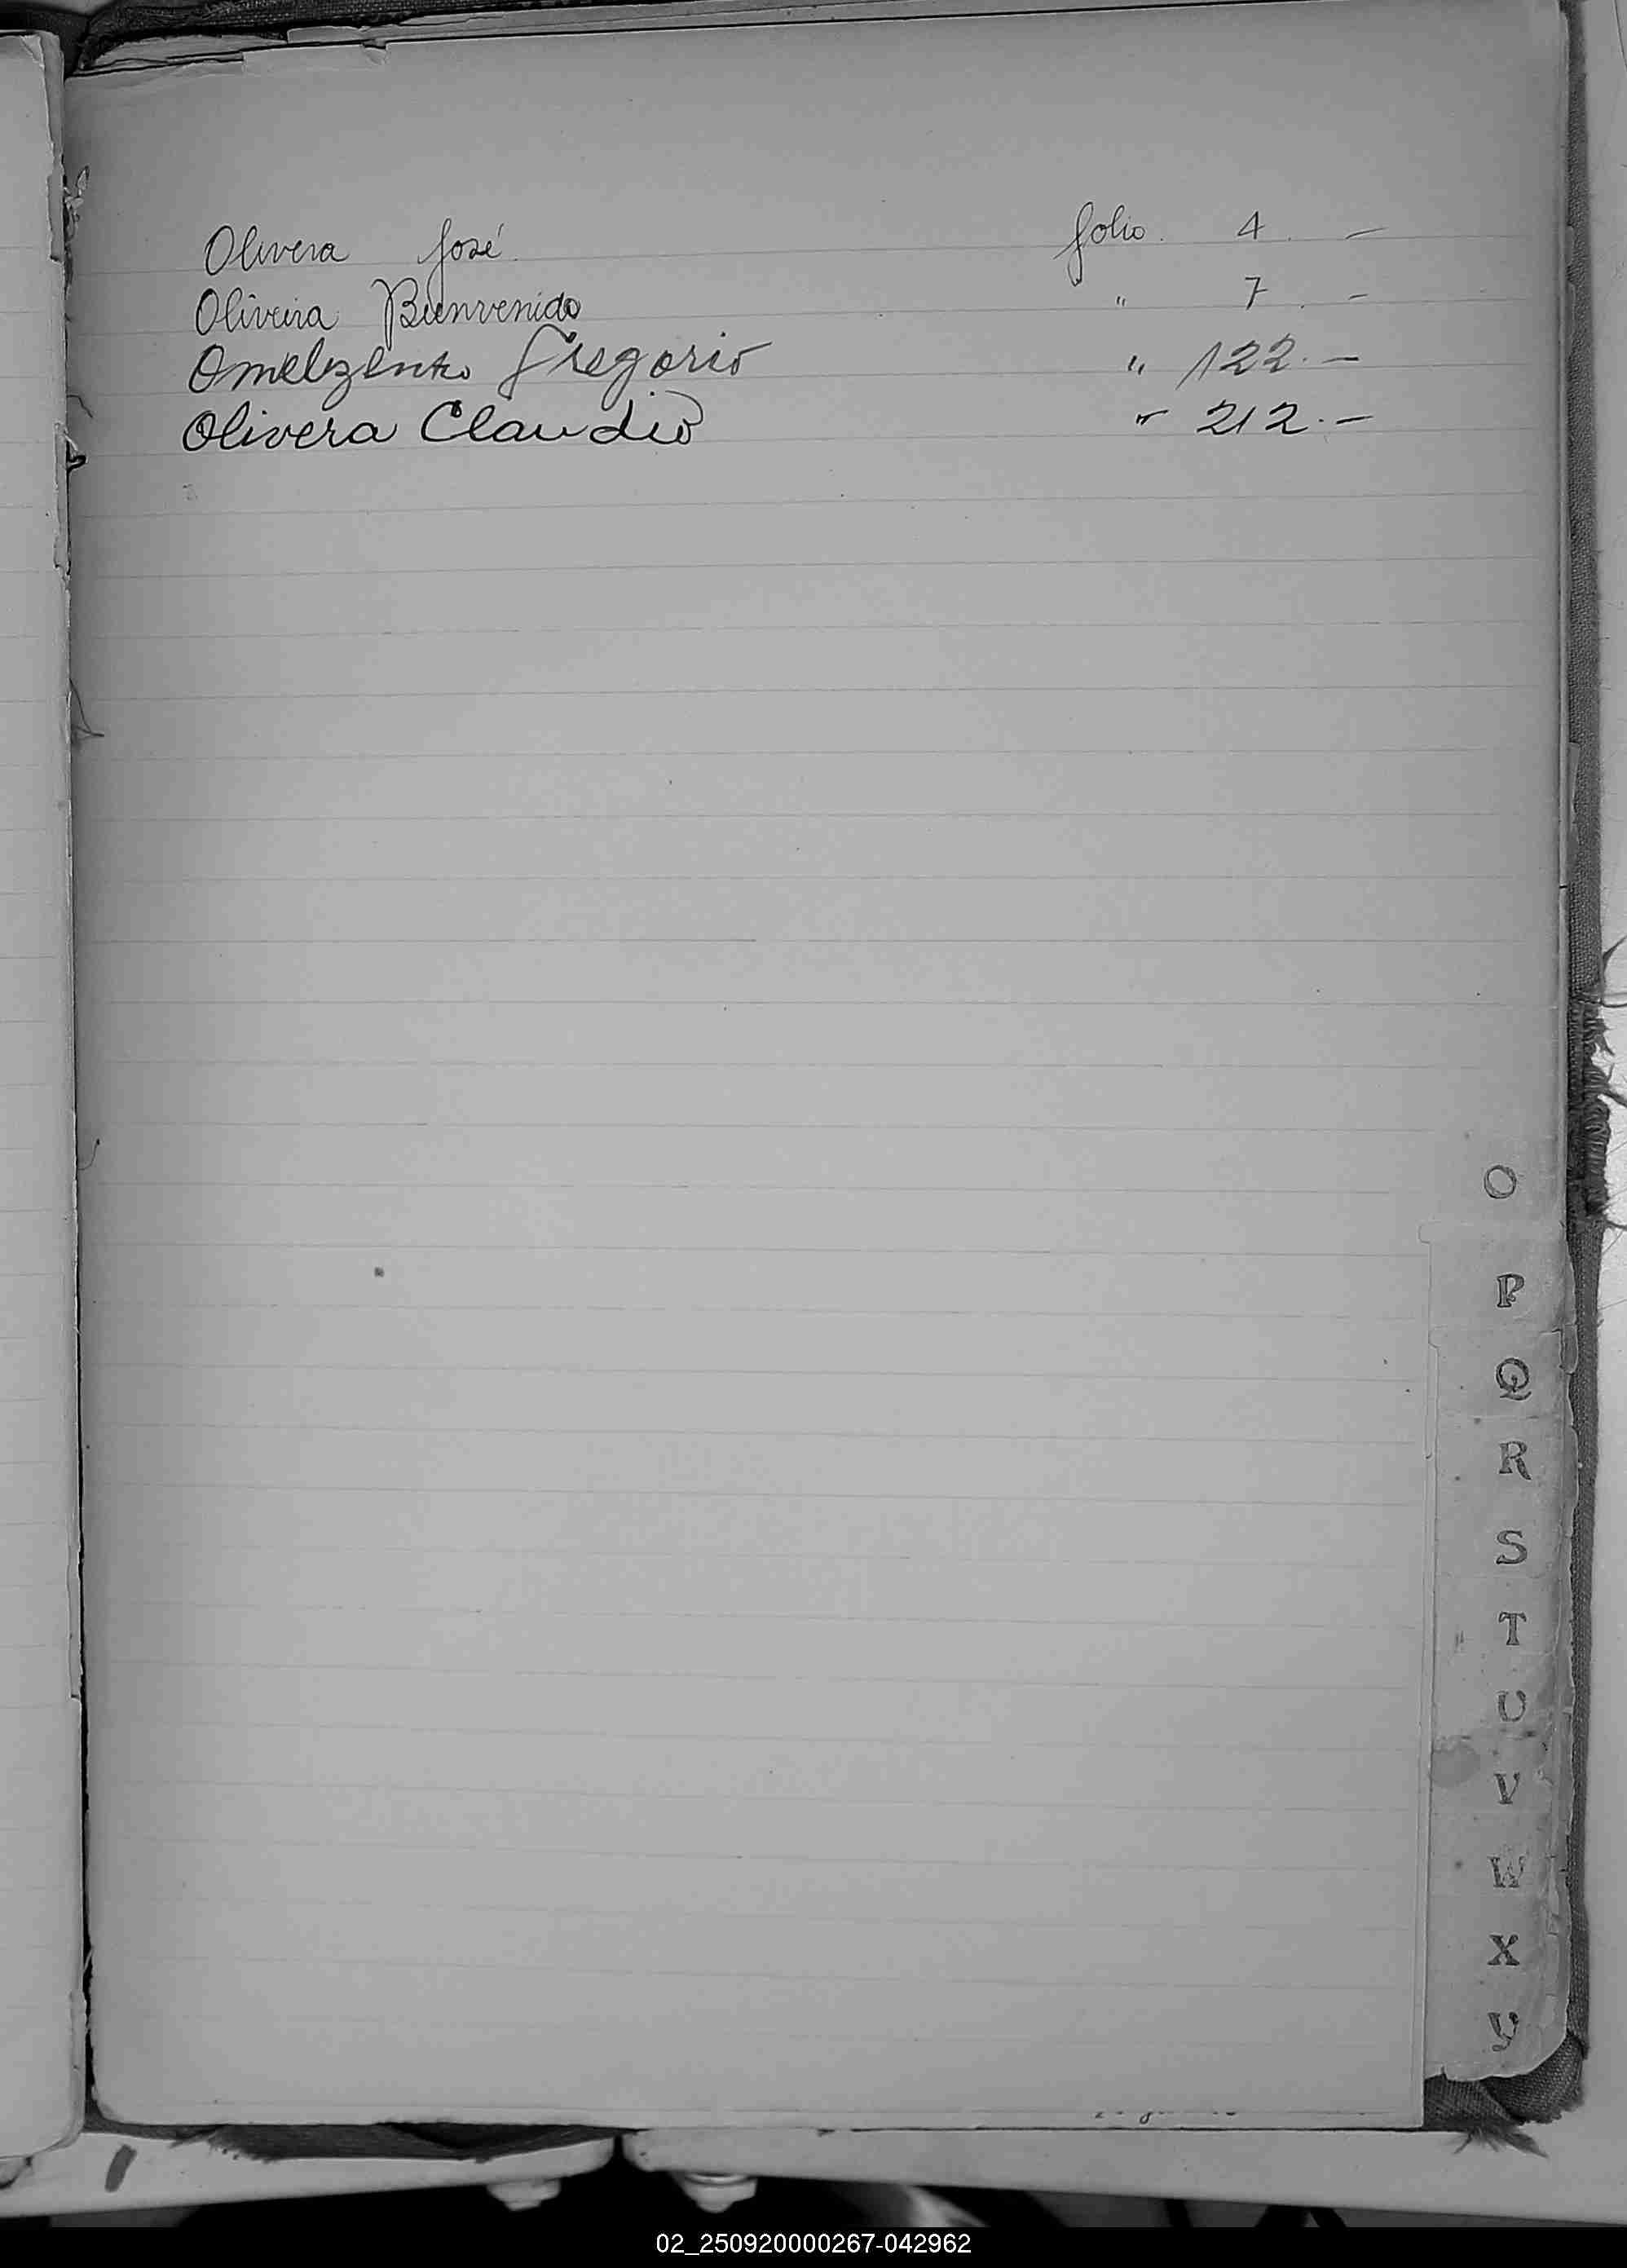 Olivera José. folio. 4. —
Oliveira Bienvenido " 7. —
Omelzenko Gregorio " 122. —
Olivera Claudio " 212. —
O
P
Q
R
S
T
U
V
W
X
Y
02_250920000267-042962